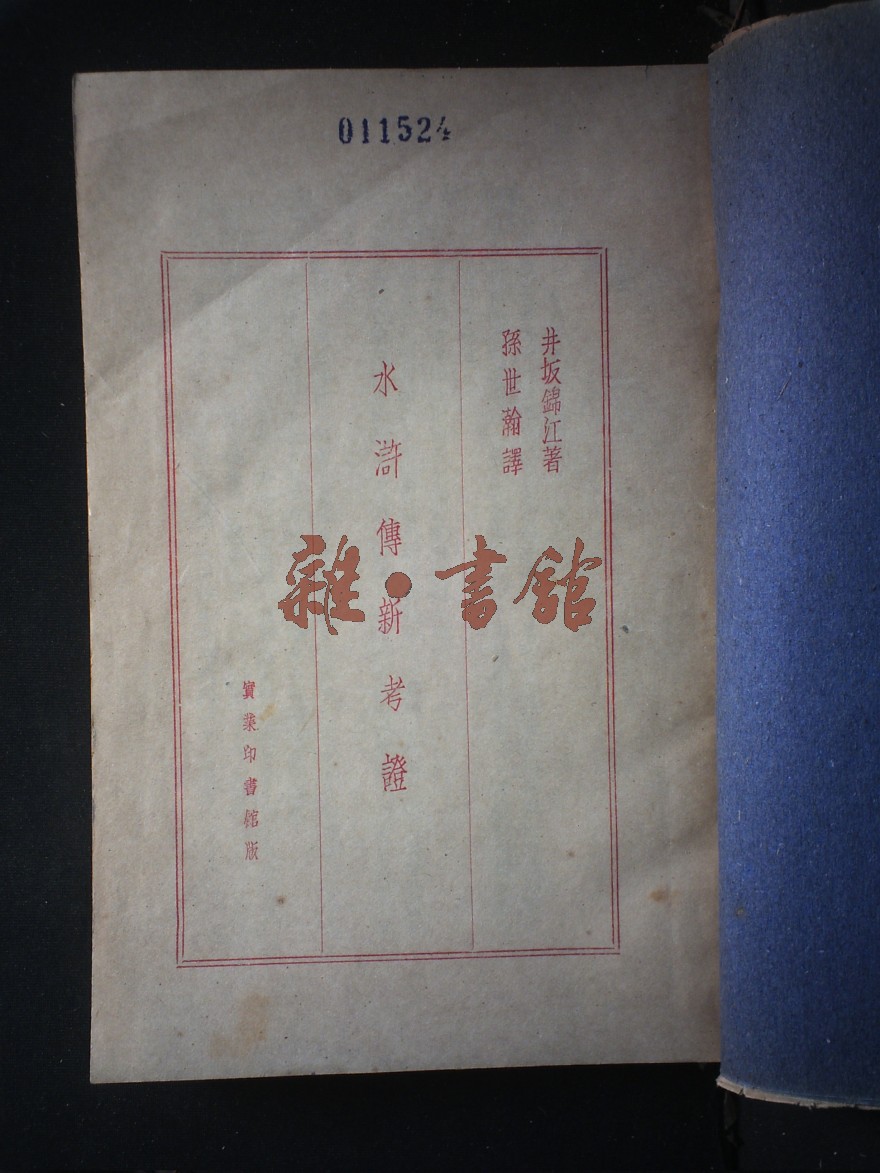 011524
井坂錦江著
孫世瀚譯
水滸傳新考證
實業印書館版
雜·書館